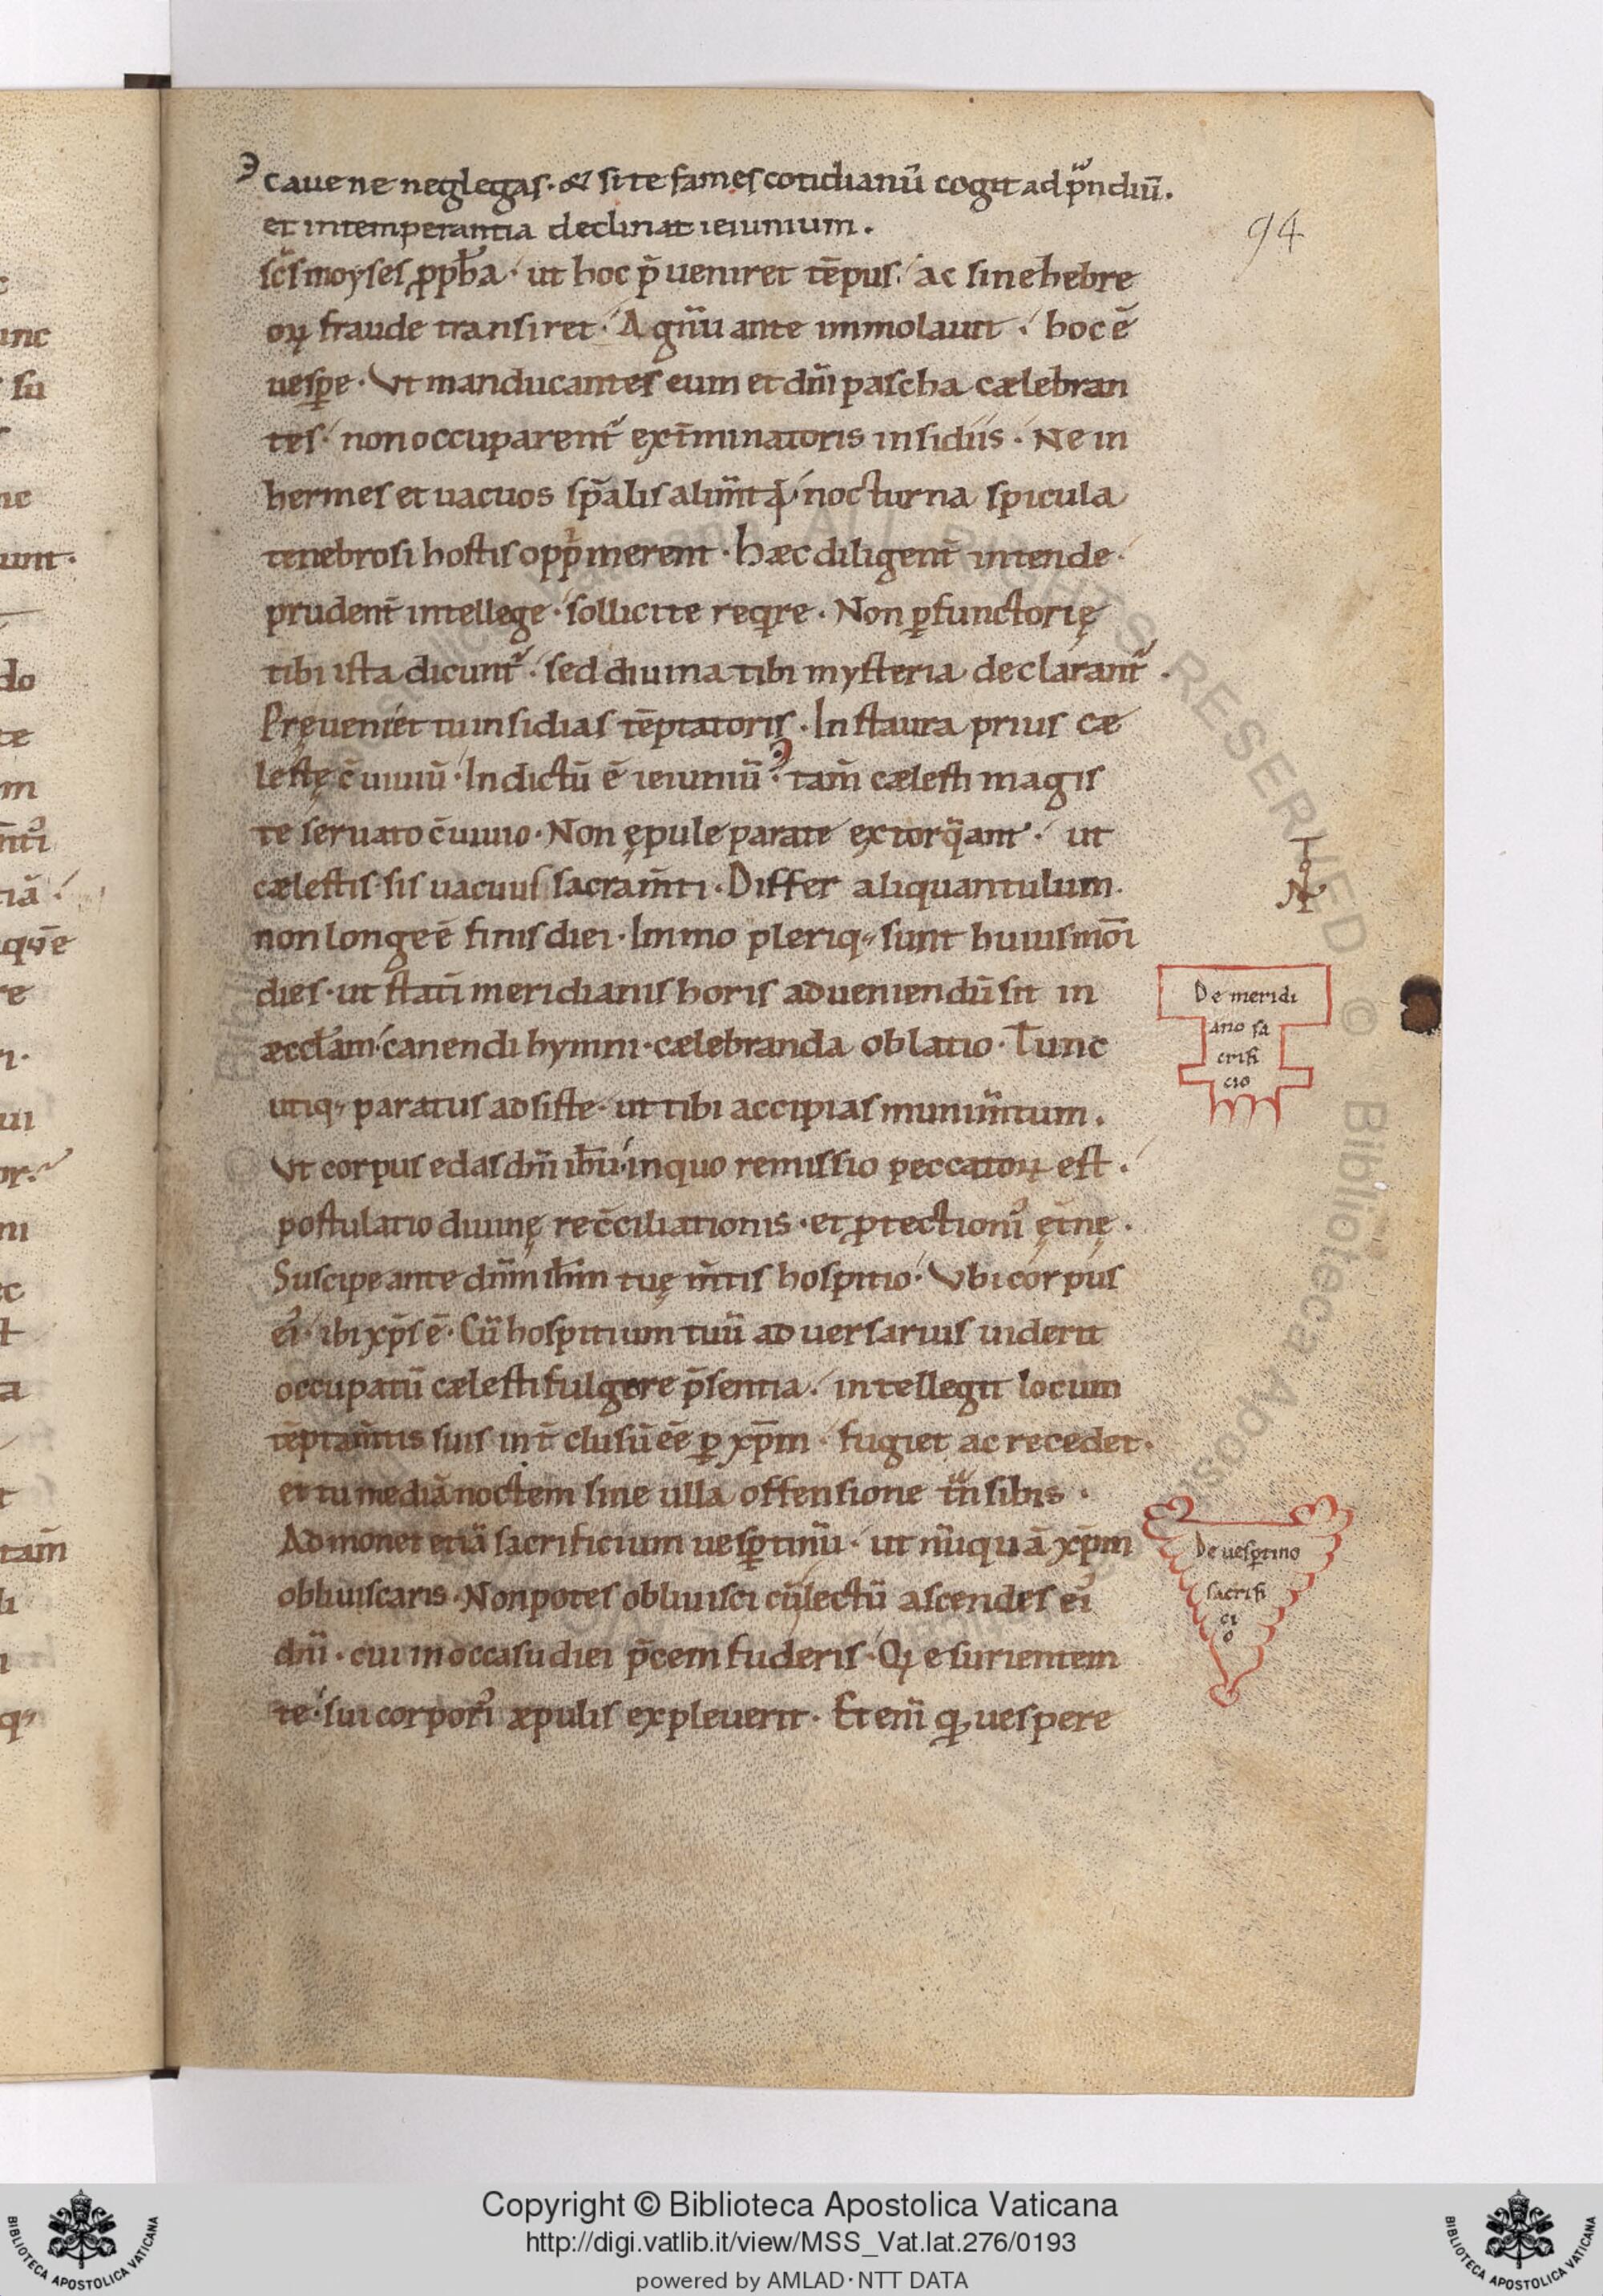 caue ne neglegas. & si te fames cotidianū cogit ad p̄ndiū.
et intemperantia declinat ieiunium.
94
sc̄s moyses ꝓph̄a. ut hoc p̄ueniret tēpus. ac sine hebre
oꝝ fraude transiret. Agnū ante immolauit. hoc ē
uesꝑe. Vt manducantes eum et dn̄i pascha cælebran
tes. non occuparent᷑ ext̄minatoris insidiis. Ne in
hermes et uacuos sp̄alis alim̄tq̄ nocturna spicula
tenebrosi hostis opprimerent. Hæc diligent̄ intende.
prudent̄ intellege. sollicite reqͥre. Non ꝑfunctorię
tibi ista dicunt᷑. sed diuina tibi mysteria declarant᷑.
Pręueniet tu insidias tēptatoris. Instaura prius cæ
lestę c̄uiuiū. Indictū ē ieiuniū. tam̄ cælesti magis
te seruato c̄uiuio. Non ępule parate extorqͣant. ut
cælestis sis uacuus sacram̄ti. Differ aliquantulum.
non longe ē finis diei. Immo pleriq; sunt huiusmōi
dies. ut statī meridianis horis adueniendū sit in
æccl̄am. canendi hymni. cælebranda oblatio. Tunc
De meridi
ano sa
crifi
cio
utiq; paratus adsiste. ut tibi accipias munim̄tum.
Vt corpus edas dn̄i ih̄u. in quo remissio peccatoꝝ est.
postulatio diuinę rec̄ciliationis. et ꝓtectionis ęt̄nę.
Suscipe ante dn̄m ih̄m tuę m̄tis hospitio. Vbi corpus
eiꝰ. ibi xp̄s ē. Cū hospitium tuū aduersarius uiderit
occupatū cælesti fulgore p̄sentia. intellegit locum
tēptam̄tis suis int̄clusū eē ꝑ xp̄m. fugiet ac recedet.
et tu mediā noctem sine ulla offensione tͣnsibis.
Admonet etiā sacrificium uesꝑtinū. ut nūquā xp̄m
De uesꝑtino
sacrifi
ci
o
obliuiscaris. Non potes obliuisci cū lectū ascendes eiꝰ
dn̄i. cui in occasu diei p̄cem fuderis. Qͥ esurientem
te. sui corporis æpulis expleuerit. Et eni̅ ꝙ uespere
Copyright © Biblioteca Apostolica Vaticana
http://digi.vatlib.it/view/MSS_Vat.lat.276/0193
powered by AMLAD·NTT DATA
BIBLIOTECA APOSTOLICA VATICANA
BIBLIOTECA APOSTOLICA VATICANA